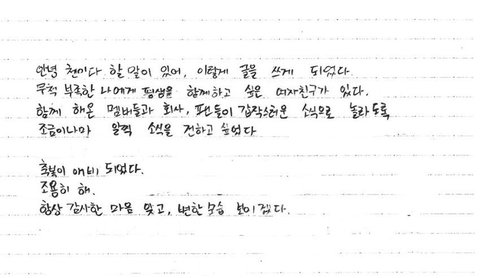 안녕 천이다 할 말이 있어, 이렇게 글을 쓰게 되었다.
무척 부족한 나에게 평생을 함께하고 싶은 여자친구가 있다.
함께 해온 멤버들과 회사, 팬들이 갑작스러운 소식으로 놀라도록
조금이나마 일찍 소식을 전하고 싶었다
축복이 애비 되었다.
조용히 해.
항상 감사한 마음 잊고, 변한 모습 보이겠다.